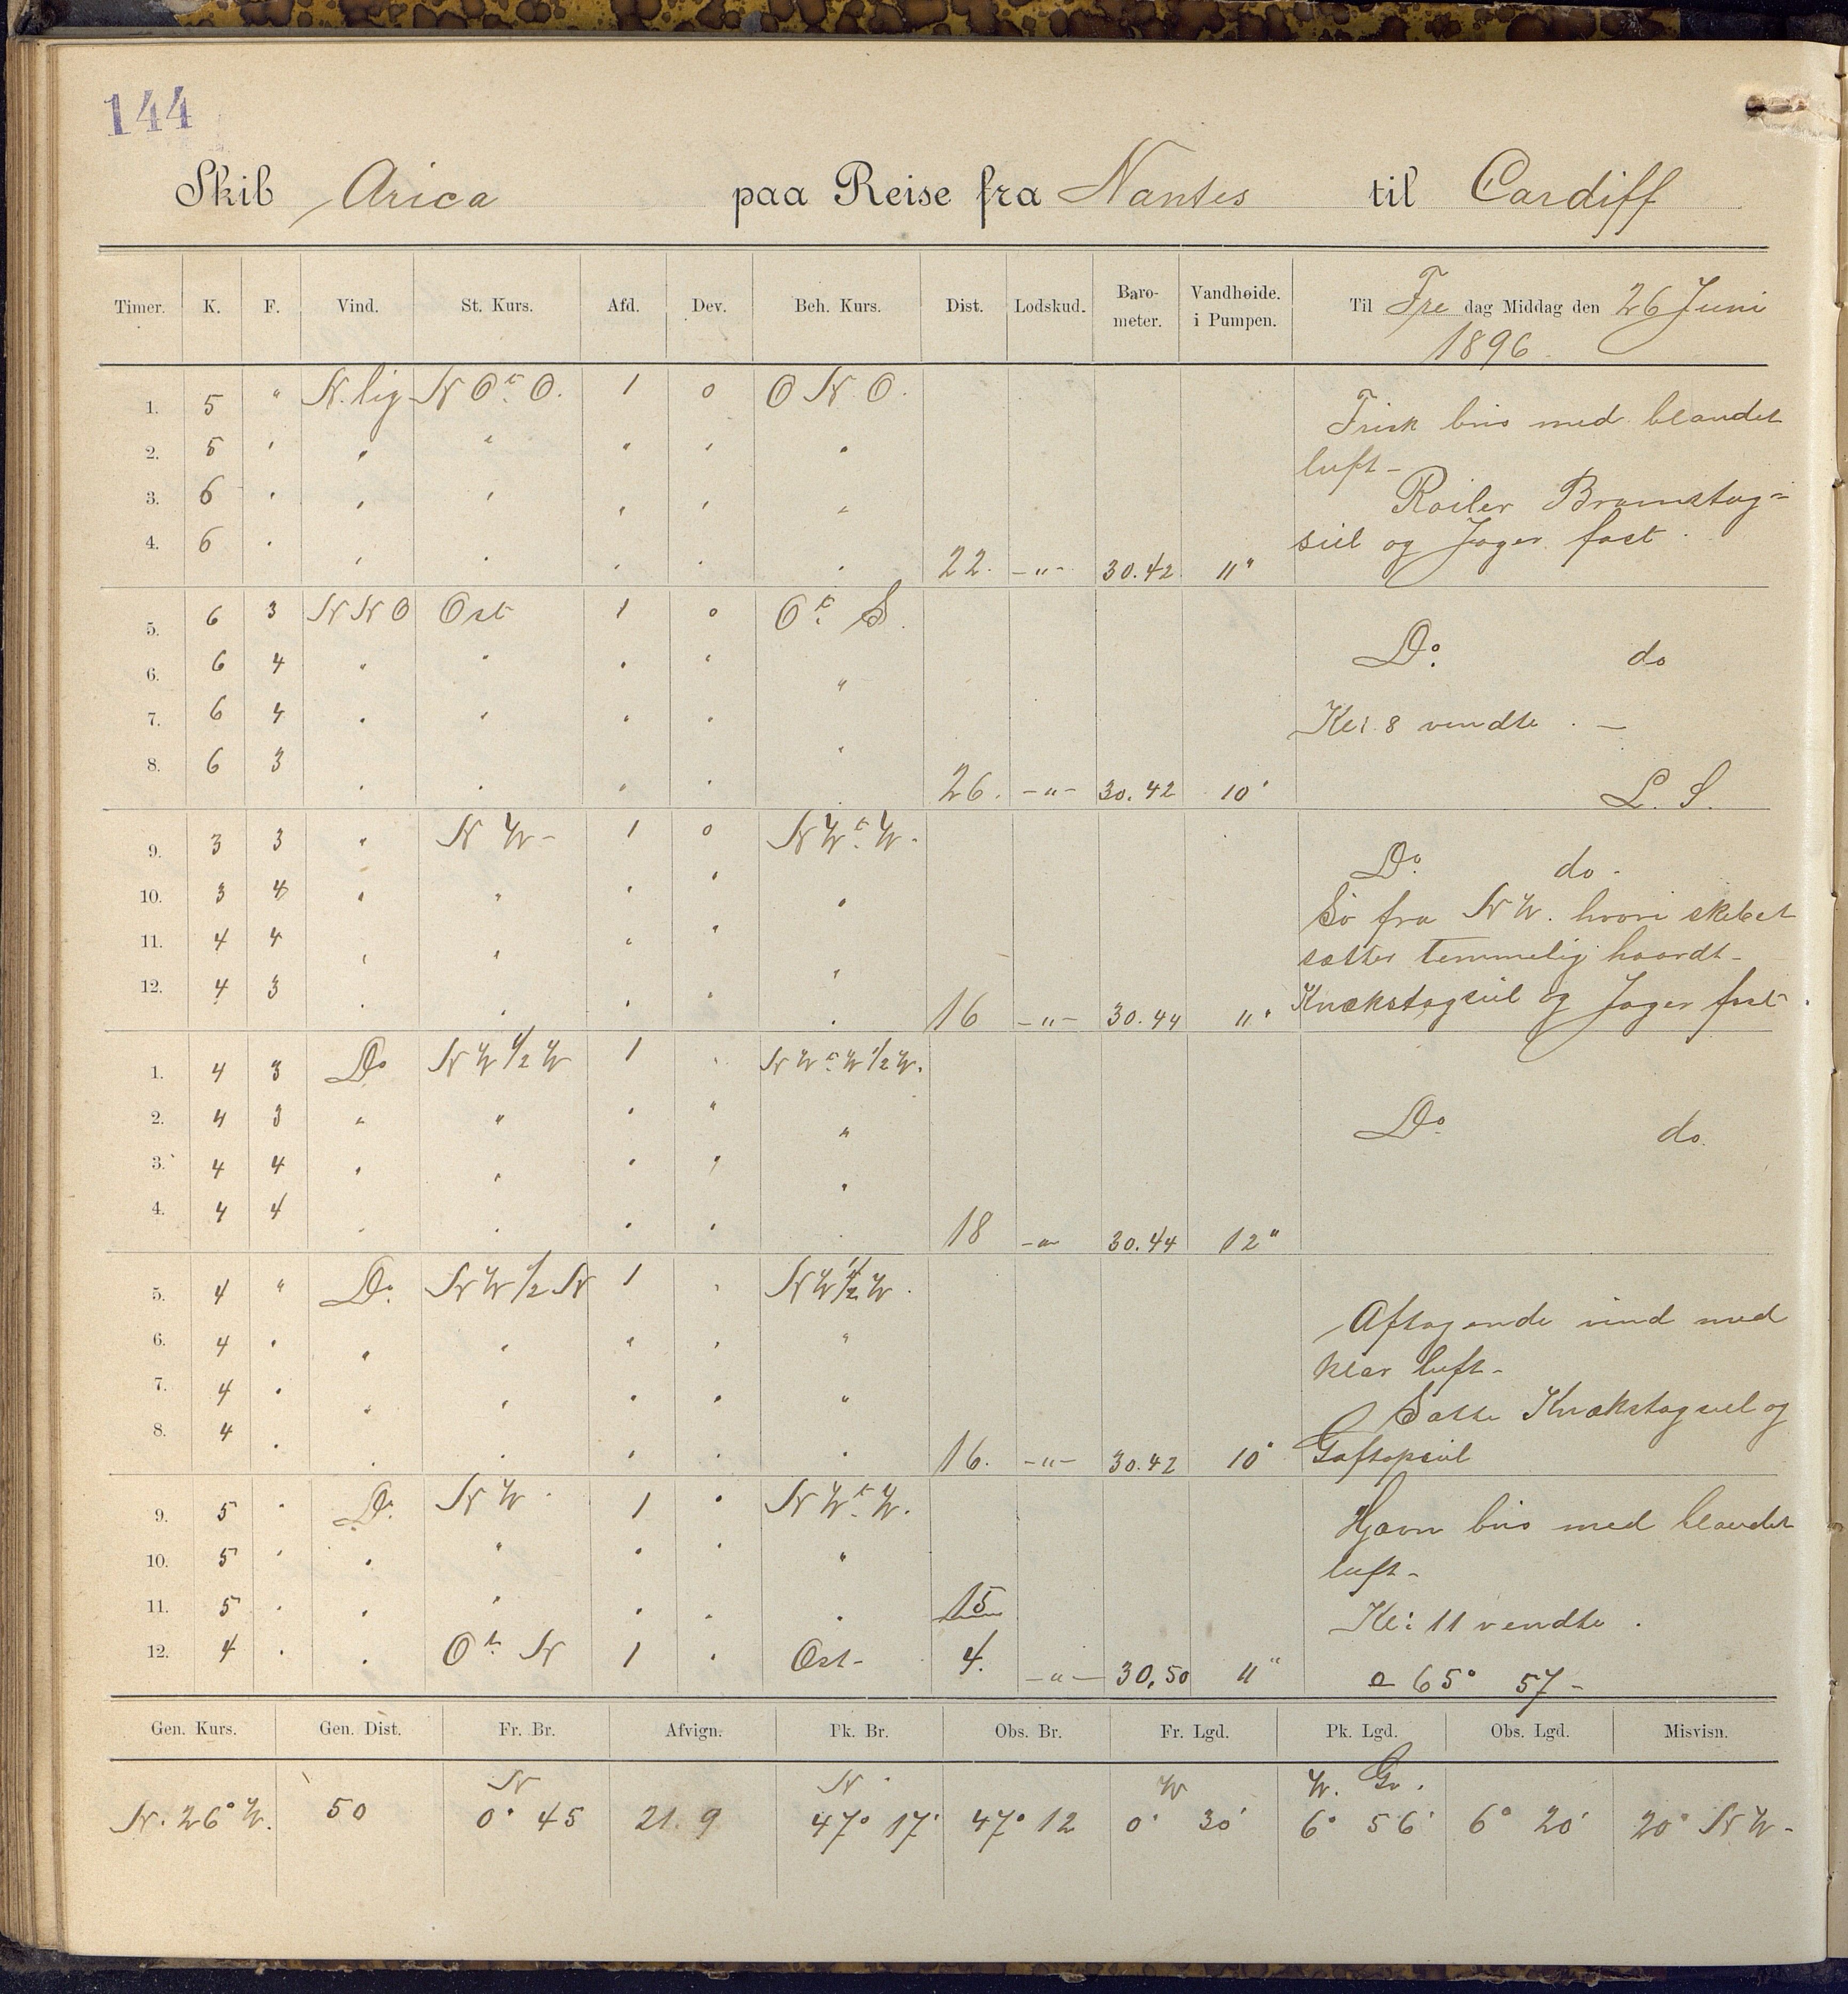 144
Skib Arica paa Reise fra Nantes til Cardiff
Timer. K. F. Vind. St. Kurs. Afd. Dev. Beh. Kurs. Dist. Lodskud. Baro-meter. Vandhøide. i Pumpen. Til Fre dag Middag den 26 Juni
1896
1. 5 " N.lig N O t. O. 1 0 O N O. Frisk bris med blandet
2. 5 " " " " " " luft-
3. 6 " " " " " " Roiler Bramstag-
4. 6 " " " " " " 22. -"- 30.42 11" seil og Jager fast.
5. 6 3 N N O Ost 1 0 O t. S.
6. 6 4 " " " " " Do. do
7. 6 4 " " " " " Kl: 8 vendte. -
8. 6 3 " " " " " 26. -"- 30.42 10" L. S.
9. 3 3 " N W- 1 0 N W t. W. Do. do.
10. 3 4 " " " " " Sø fra N W. hvori skibet
11. 4 4 " " " " " sætter temmelig haardt-
12. 4 3 " " " " " 16 -"- 30.44 11" Knækstagseil og Jager fast.
1. 4 3 Do N W 1/2 W 1 " N W t. W 1/2 W.
2. 4 3 " " " " " Do do.
3. 4 4 " " " " "
4. 4 4 " " " " " 18 -"- 30.44 12"
5. 4 " Do. N W 1/2 N 1 " N W 1/2 W. Aftagende vind med
6. 4 " " " " " " klar luft-
7. 4 " " " " " " Satte Knækstagseil og
8. 4 " " " " " " 16. -"- 30.42 10" Gaftopseil
9. 5 " Do. N W. 1 " N W t. W. Hjævn bris med blandet
10. 5 " " " " " " luft-
11. 5 " " " " " " 15 Kl: 11 vendte.
12. 4 " " O t. N 1 " Ost- 4. -"- 30,50 11" 65° 57-
Gen. Kurs. Gen. Dist. Fr. Br. Afvign. Pk. Br. Obs. Br. Fr. Lgd. Pk. Lgd. Obs. Lgd. Misvisn.
N N. W W. Gr.
N. 26° W. 50 0° 45 21.9 47° 17' 47° 12 0° 30' 6° 56' 6° 20' 20° N W-